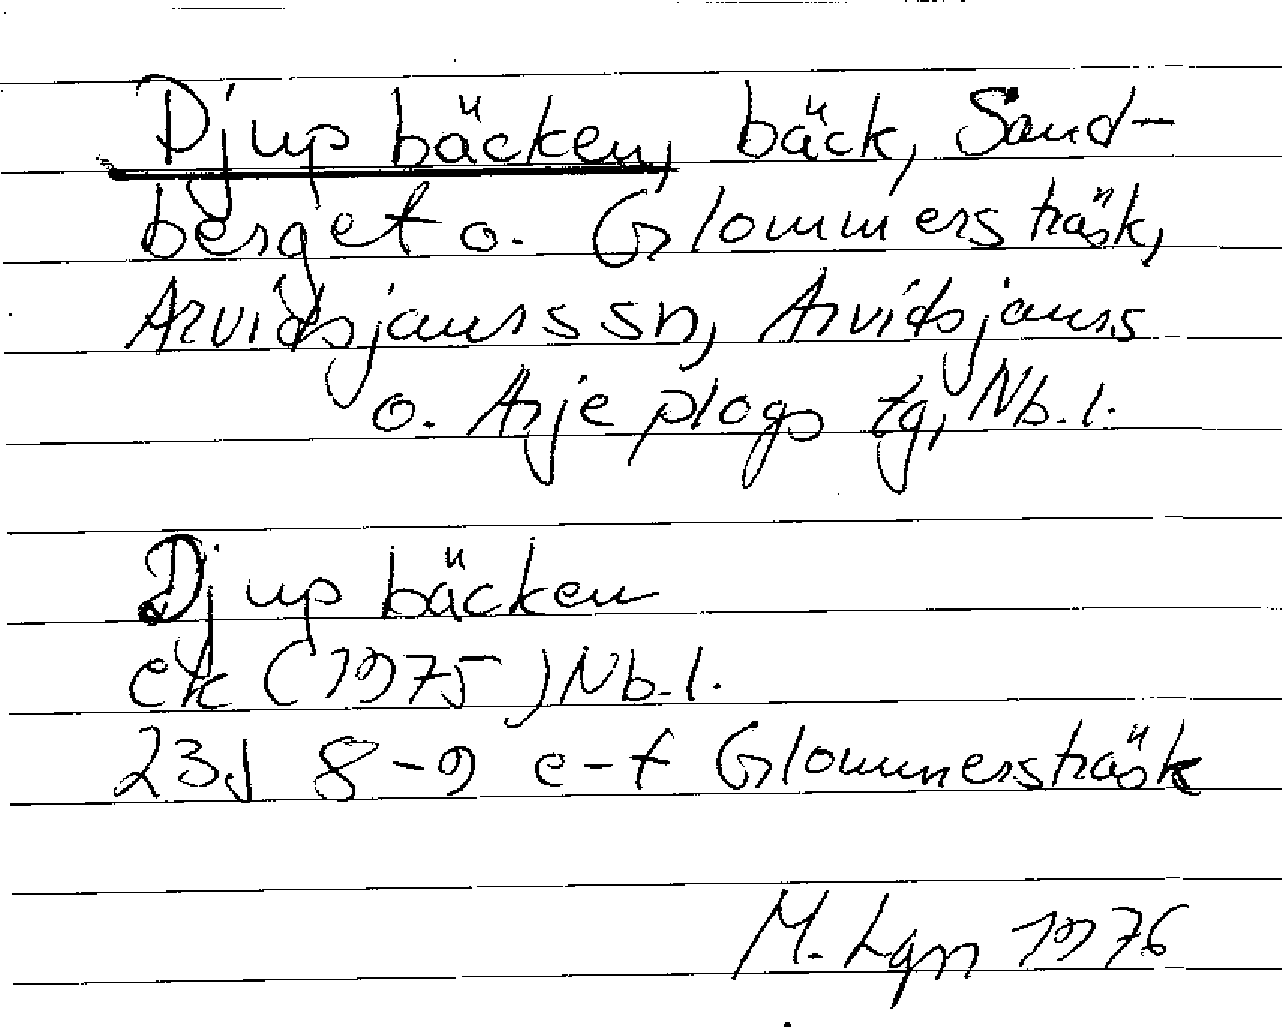 Djupbäcken, bäck, Sand-
berget o. Glommersträsk,
Arvidsjaurs sn, Arvidsjaurs
o. Arjeplogs tg, Nb. l.
Djupbäcken
ek (1975) Nb. l.
23J 8-9 e-f Glommersträsk
M. Lgn 1976